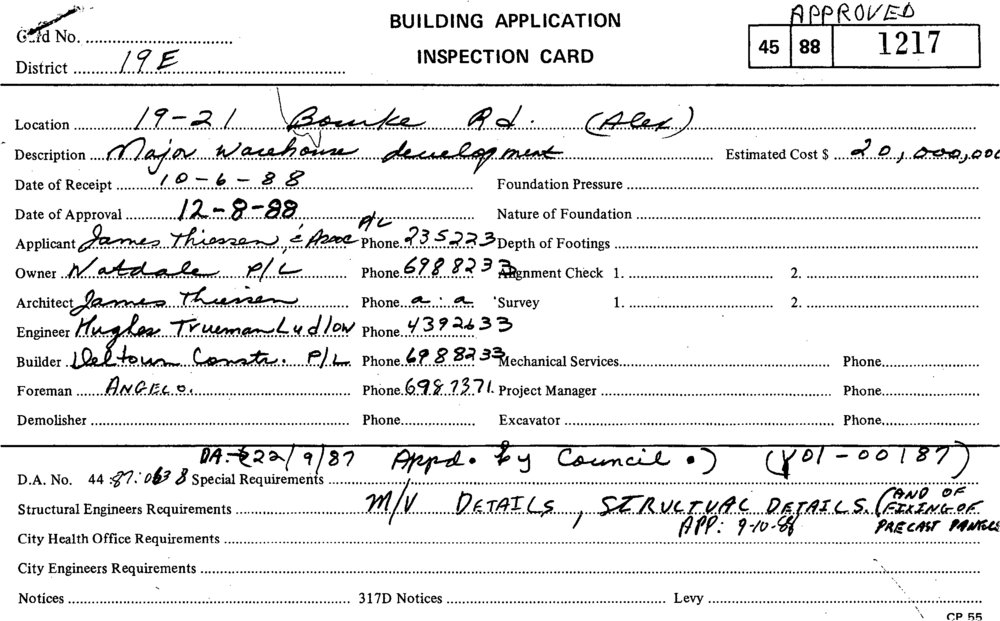 BUILDING APPLICATION
INSPECTION CARD
APPROVED
45 88 1217
Card No.
District 19E
Location 19-21 Bourke Rd. (Alex)
Description Major Warehouse development Estimated Cost $ 20,000,000
Date of Receipt 10-6-88 Foundation Pressure
Date of Approval 12-8-88 Nature of Foundation
Applicant James Thiessen & Assoc P/L Phone 235223 Depth of Footings
Owner Natdale P/L Phone 6988233 Alignment Check 1. 2.
Architect James Thiessen Phone a.a Survey 1. 2.
Engineer Hughes Trueman Ludlow Phone 4392633
Builder Deltown Constr. P/L Phone 6988233 Mechanical Services Phone
Foreman ANGELO. Phone 6987371. Project Manager Phone
Demolisher Phone Excavator Phone
DA. 22/9/87 Appd. by Council.) (Y01-00187)
D.A. No. 44 87.0638 Special Requirements
Structural Engineers Requirements M/V DETAILS, STRUCTUAL DETAILS. (AND OF FIXING OF PRECAST PANELS
APP: 9-10-88
City Health Office Requirements
City Engineers Requirements
Notices 317D Notices Levy
CP 55